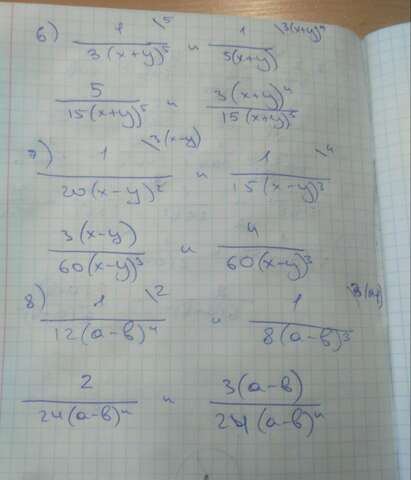 6) 1/(3(x+y)⁵) \5 и 1/(5(x+y)) \3(x+y)⁴
5/(15(x+y)⁵) и 3(x+y)⁴/(15(x+y)⁵)
7) 1/(20(x-y)²) \3(x-y) и 1/(15(x-y)³) \4
3(x-y)/(60(x-y)³) и 4/(60(x-y)³)
8) 1/(12(a-b)⁴) \2 и 1/(8(a-b)³)
2/(24(a-b)⁴) и 3(a-b)/(24(a-b)⁴)